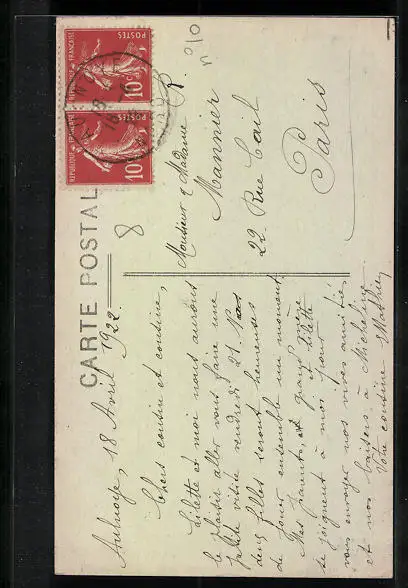 CARTE POSTALE
RÉPUBLIQUE FRANÇAISE
POSTES
10c
RÉPUBLIQUE FRANÇAISE
POSTES
10c
8
n° 10
Monsieur & Madame
Mannier
22 Rue Cail
Paris
Aulnoye, 18 Avril 1922.
Chers cousin et cousine,
Lilette et moi nous aurons
le plaisir aller vous faire une
petite visite vendredi 21. Nos
deux filles seront heureuses
de jouer ensemble un moment.
Mes parents, et grand'mère
Lilette
se joignent à moi pour
vous envoyer nos vives amitiés
et nos baisers à Micheline
Votre cousine Mathieu